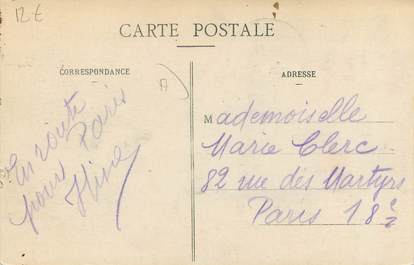 12 €
CARTE POSTALE
CORRESPONDANCE
En route
pour Paris
ADRESSE
Mademoiselle
Marie Clerc
82 rue des Martyrs
Paris 18e